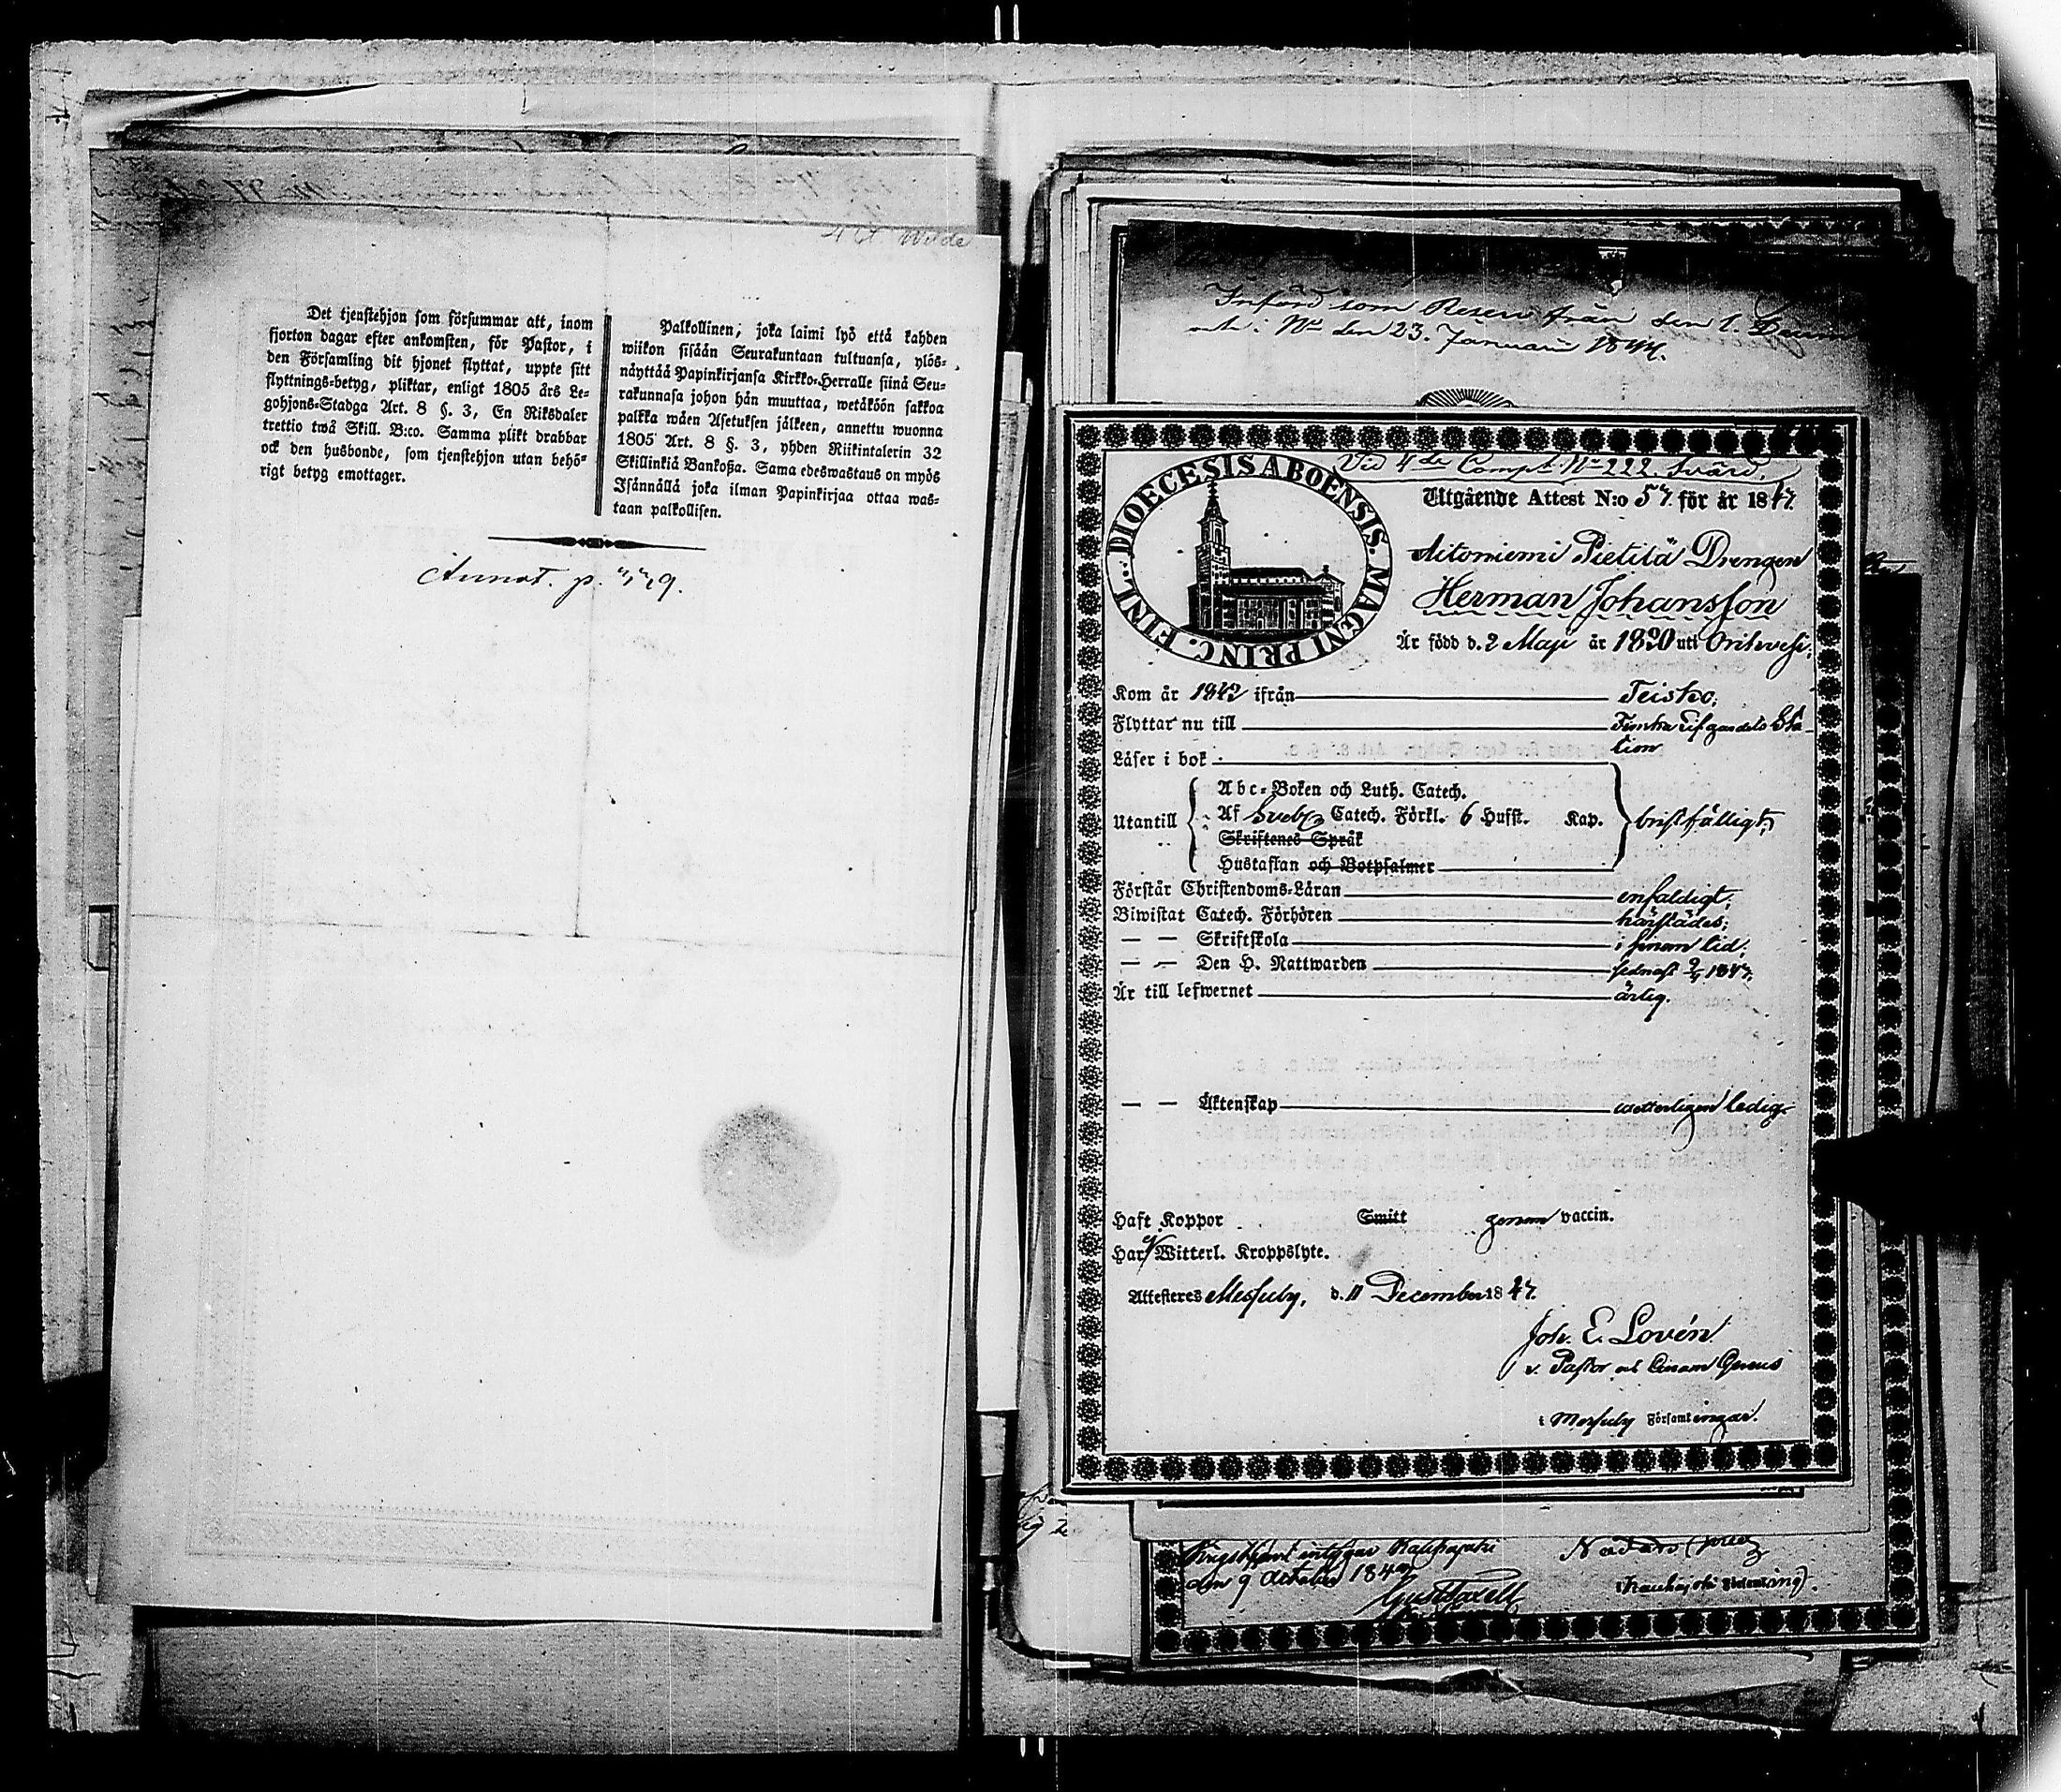 4 Wilde
Det tjenstehjon som försummar att, inom
fjorton dagar efter ankomsten, för Pastor, i
den Församling dit hjonet flyttat, uppte sitt
flyttnings-betyg, pliktar, enligt 1805 års Le-
gohjons-Stadga Art. 8 §. 3, En Riksdaler
trettio twå Skill. B:co. Samma plikt drabbar
ock den husbonde, som tjenstehjon utan behö-
rigt betyg emottager.
Palkollinen, joka laimi lyö että kahden
wiikon sisään Seurakuntaan tultuansa, ylös-
näyttää Papinkirjansa Kirkko-Herralle siinä Seu-
rakunnasa johon hän muuttaa, wetäköön sakkoa
palkka wäen Asetuksen jälkeen, annettu wuonna
1805 Art. 8 §. 3, yhden Riikintalerin 32
Skillinkiä Bankosa. Sama edeswastaus on myös
Isännällä joka ilman Papinkirjaa ottaa was-
taan palkollisen.
Annot. p.
Införd som Reserv från den 1.
den 23. Januarii 1844.
Vid 4de Comp. No 222. Svärd.
DIOECESIS ABOENSIS. MAGNI PRINC. FINL.
Utgående Attest N:o 57 för år 1847.
Aitoniemi Pietilä Drengen
Herman Johansson
Är född d. 2 Maji år 1820 uti Orihvesi;
Kom år 1842 ifrån Teisko;
Flyttar nu till Finska Lifgardets Sta-
tion
Läser i bok
Abc-Boken och Luth. Catech.
Utantill Af Sveb. Catech. Förkl. 6 Hufst. Kap. bristfälligt;
Skriftenes Språk
Hustaflan och Botpsalmer
Förstår Christendoms-Läran enfaldigt;
Biwistat Catech. Förhören härstädes;
— — Skriftskola i sinom tid;
— — Den H. Nattwarden sednast 1847;
Är till lefwernet ärlig.
— — Äktenskap wetterligen ledig.
Haft Koppor Smitt genom vaccin.
Har ej Witterl. Kroppslyte.
Attesteres Messuby, d. 11 December 1847.
Joh. E. Lovén
v. Pastor
i Messuby Församlingar.
den 9 October